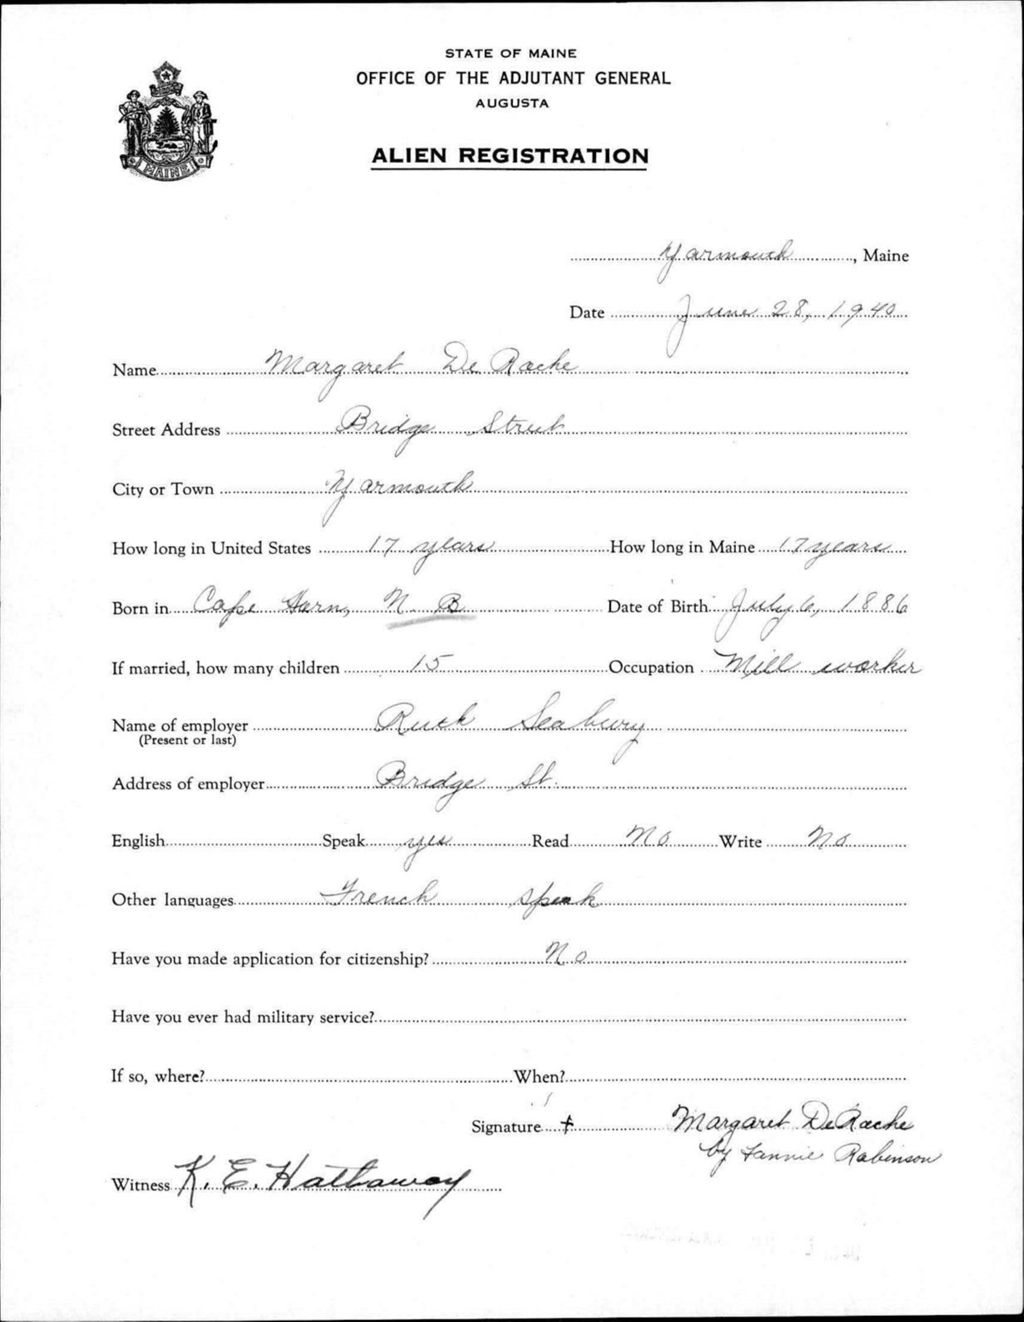 STATE OF MAINE
OFFICE OF THE ADJUTANT GENERAL
AUGUSTA
ALIEN REGISTRATION
MAINE
Yarmouth, Maine
Date June 28, 1940
Name Margaret De Roche
Street Address Bridge Street
City or Town Yarmouth
How long in United States 17 years How long in Maine 17 years
Born in Cape Harn, N. B Date of Birth July 6, 1886
If married, how many children 15 Occupation Mill worker
Name of employer Ruth Seabury
(Present or last)
Address of employer Bridge St.
English Speak yes Read No Write No
Other languages French speak
Have you made application for citizenship? No
Have you ever had military service?
If so, where? When?
Signature + Margaret DeRoche
by Fannie Robinson
Witness K. E. Hathaway